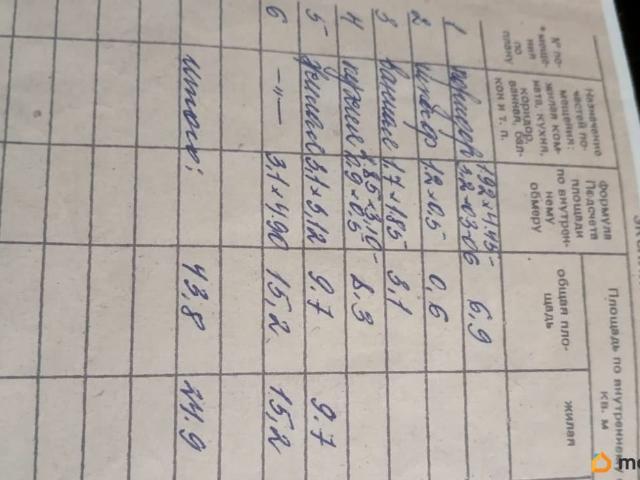 Площадь по внутреннему
кв. м
№ по-
меще-
ния
по
плану
Назначение
частей по-
мещения:
жилая ком-
ната, кухня,
коридор,
ванная, бал-
кон и т. п.
Формула
Подсчета
площади
по внутрен-
нему
обмеру
общая пло-
щадь
жилая
1 коридор 1.92×4.45- 6,9
1.2×0.3-0.6
2 шкаф 1.2×0.5- 0,6
3 ванная 1.7×1.85 3,1
4 кухня 2.85×3.10- 8.3
0.9×0.5
5 жилая 3.1×3.12 9.7 9.7
6 —„— 3.1×4.90 15,2 15,2
итого: 43,8 24.9